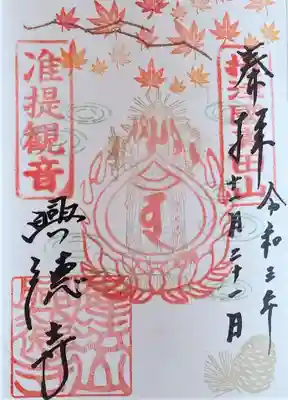 奉拝
令和三年
十一月二十一日
准提観音
興徳寺